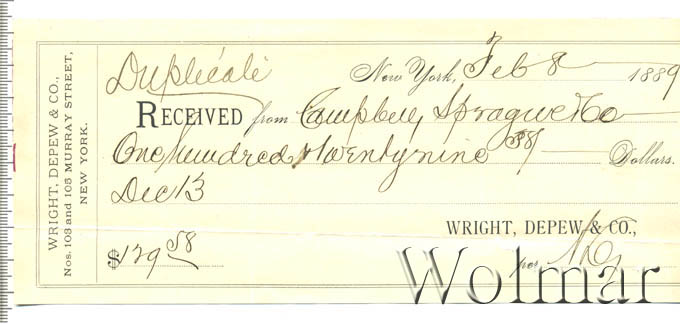 WRIGHT, DEPEW & CO.,
Nos. 103 and 105 MURRAY STREET,
NEW YORK.
Duplicate
New York, Feb 8 1889
RECEIVED from Campbell, Sprague & Co
One hundred & twenty nine 58/ Dollars.
Dec 13
WRIGHT, DEPEW & CO.,
$129 58
per
Wolmar